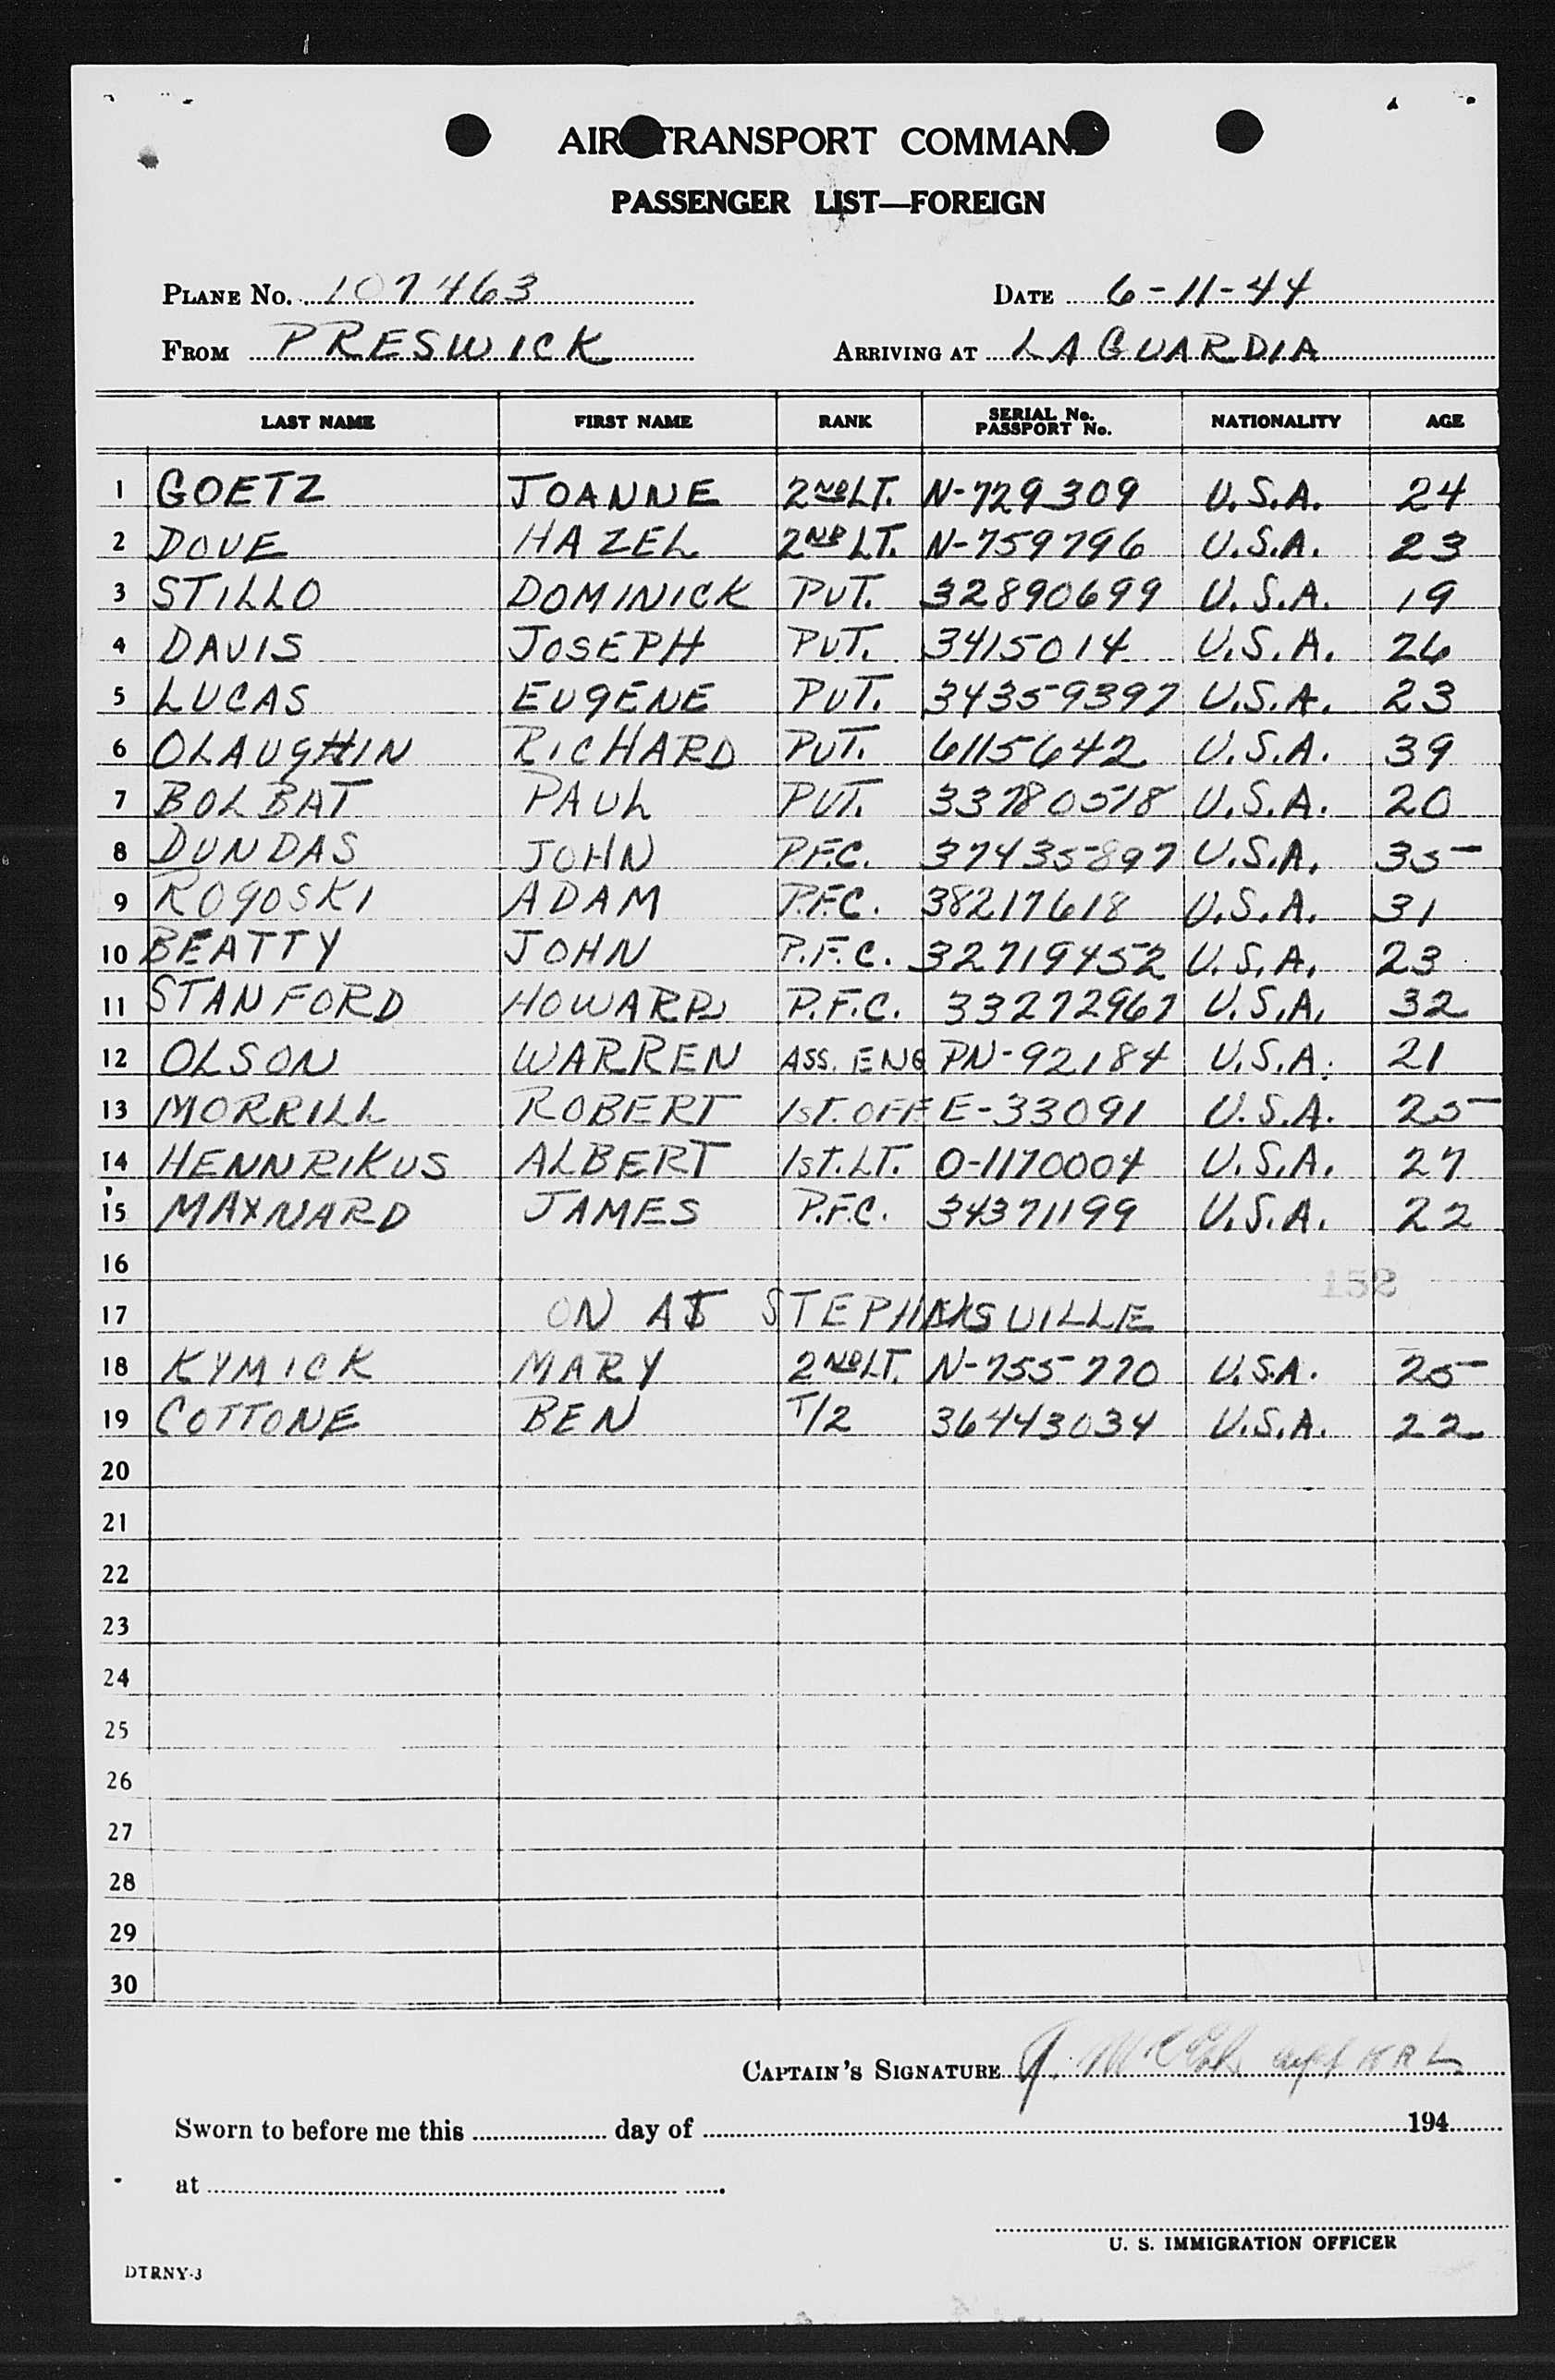 AIR TRANSPORT COMMAND
PASSENGER LIST—FOREIGN
PLANE No. 107463 DATE 6-11-44
FROM PRESWICK ARRIVING AT LAGUARDIA
LAST NAME FIRST NAME RANK SERIAL No. PASSPORT No. NATIONALITY AGE
1 GOETZ JOANNE 2ND LT. N-729309 U.S.A. 24
2 DOVE HAZEL 2ND LT. N-759796 U.S.A. 23
3 STILLO DOMINICK PVT. 32890699 U.S.A. 19
4 DAVIS JOSEPH PVT. 3415014 U.S.A. 26
5 LUCAS EUGENE PVT. 34359397 U.S.A. 23
6 OLAUGHIN RICHARD PVT. 6115642 U.S.A. 39
7 BOLBAT PAUL PVT. 33780518 U.S.A. 20
8 DUNDAS JOHN P.F.C. 37435897 U.S.A. 35
9 ROGOSKI ADAM P.F.C. 38217618 U.S.A. 31
10 BEATTY JOHN P.F.C. 32719452 U.S.A. 23
11 STANFORD HOWARD P.F.C. 33272967 U.S.A. 32
12 OLSON WARREN ASS. ENG PN-92184 U.S.A. 21
13 MORRILL ROBERT 1ST. OFF. E-33091 U.S.A. 25
14 HENNRIKUS ALBERT 1ST. LT. O-1170004 U.S.A. 27
15 MAYNARD JAMES P.F.C. 34371199 U.S.A. 22
16
152
17 ON AT STEPHNSVILLE
18 KYMICK MARY 2ND LT. N-755770 U.S.A. 25
19 COTTONE BEN T/2 36443034 U.S.A. 22
20
21
22
23
24
25
26
27
28
29
30
CAPTAIN'S SIGNATURE
Sworn to before me this day of 194
at
U. S. IMMIGRATION OFFICER
DTRNY-3